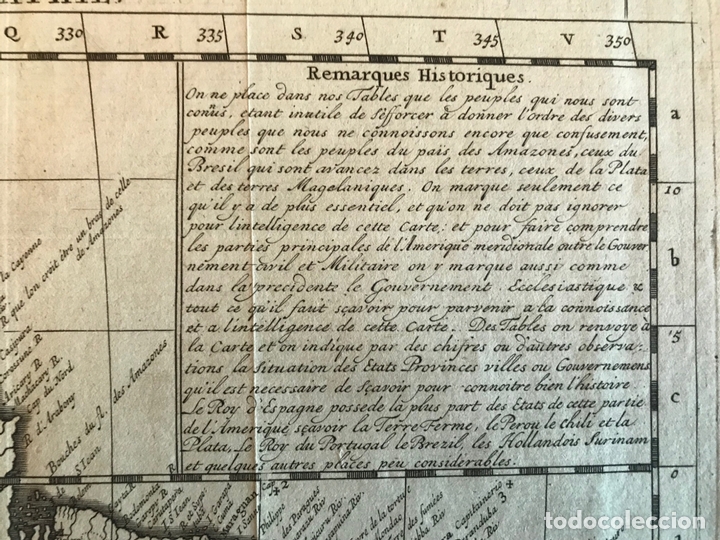 Q 330 R 335 S 340 T 345 V 350
Remarques Historiques.
On ne place dans nos Tables que les peuples qui nous sont
conus, etant inutile de s'efforcer a donner l'ordre des divers
peuples que nous ne connoissons encore que confusement,
comme sont les peuples du pais des Amazones, ceux du
Bresil qui sont avancez dans les terres, ceux de la Plata
et des terres Magelaniques. On marque seulement ce
qu'il y a de plus essentiel, et qu'on ne doit pas ignorer
pour l'intelligence de cette Carte: et pour faire comprendre
les parties principales de l'Amerique meridionale outre le Gouver
nement civil et Militaire on y marque aussi comme
dans la precedente le Gouvernement. Ecclesiastique &
tout ce qu'il faut sçavoir pour parvenir a la connoissance
et a l'intelligence de cette Carte. Des Tables on renvoye à
la Carte et on indique par des chifres ou d'autres observa-
tions la Situation des Etats Provinces villes ou Gouvernemens
qu'il est necessaire de Sçavoir pour connoitre bien l'histoire
Le Roy d'Espagne possede la plus part des Etats de cette partie
de l'Amerique sçavoir la Terre Ferme, le Perou le chili et la
Plata, Le Roy du Portugal le Brezil, les Hollandois Surinam
et quelques autres places peu considerables.
a
10
b
15
c
0
la Cayenne
R que l'on croit être un bras de celle
de Amazones
Casipura
Aricary R.
Cap du Nord
R d'Arabony
Bouches du R. des Amazones
S. Jean
de la tortue
des fumées
Capitainerie
todocoleccion
todocoleccion.net